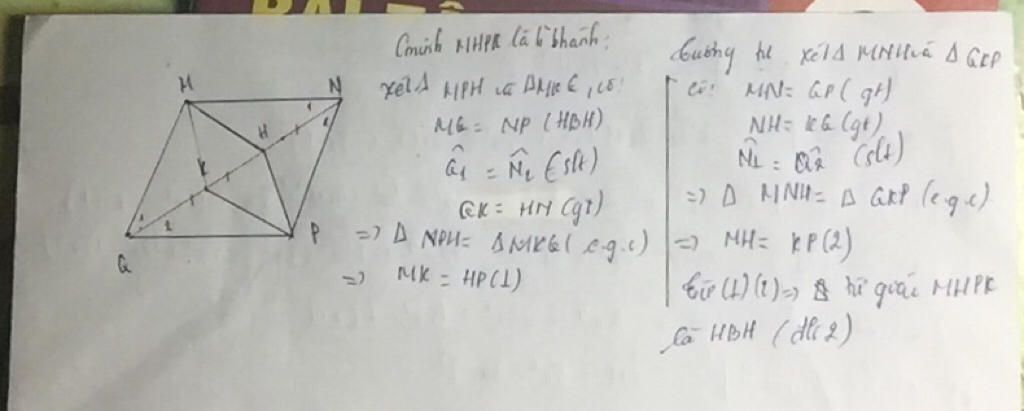 BÀI
M
N
1
2
H
K
1
2
Q
P
Cminh MHPK là b` hành:
xét Δ NPH và ΔMKQ, có:
MQ = NP (HBH)
Q̂1 = N̂2 (slt)
QK = HN (gt)
=> Δ NPH = ΔMKQ (c.g.c)
=> MK = HP (1)
Tương tự xét Δ MNH và Δ QKP
Có: MN = QP (gt)
NH = KQ (gt)
N̂1 = Q̂2 (slt)
=> Δ MNH = Δ QKP (c.g.c)
=> MH = KP (2)
Từ (1) (2) => tứ giác MHPK
là HBH (dh 2)